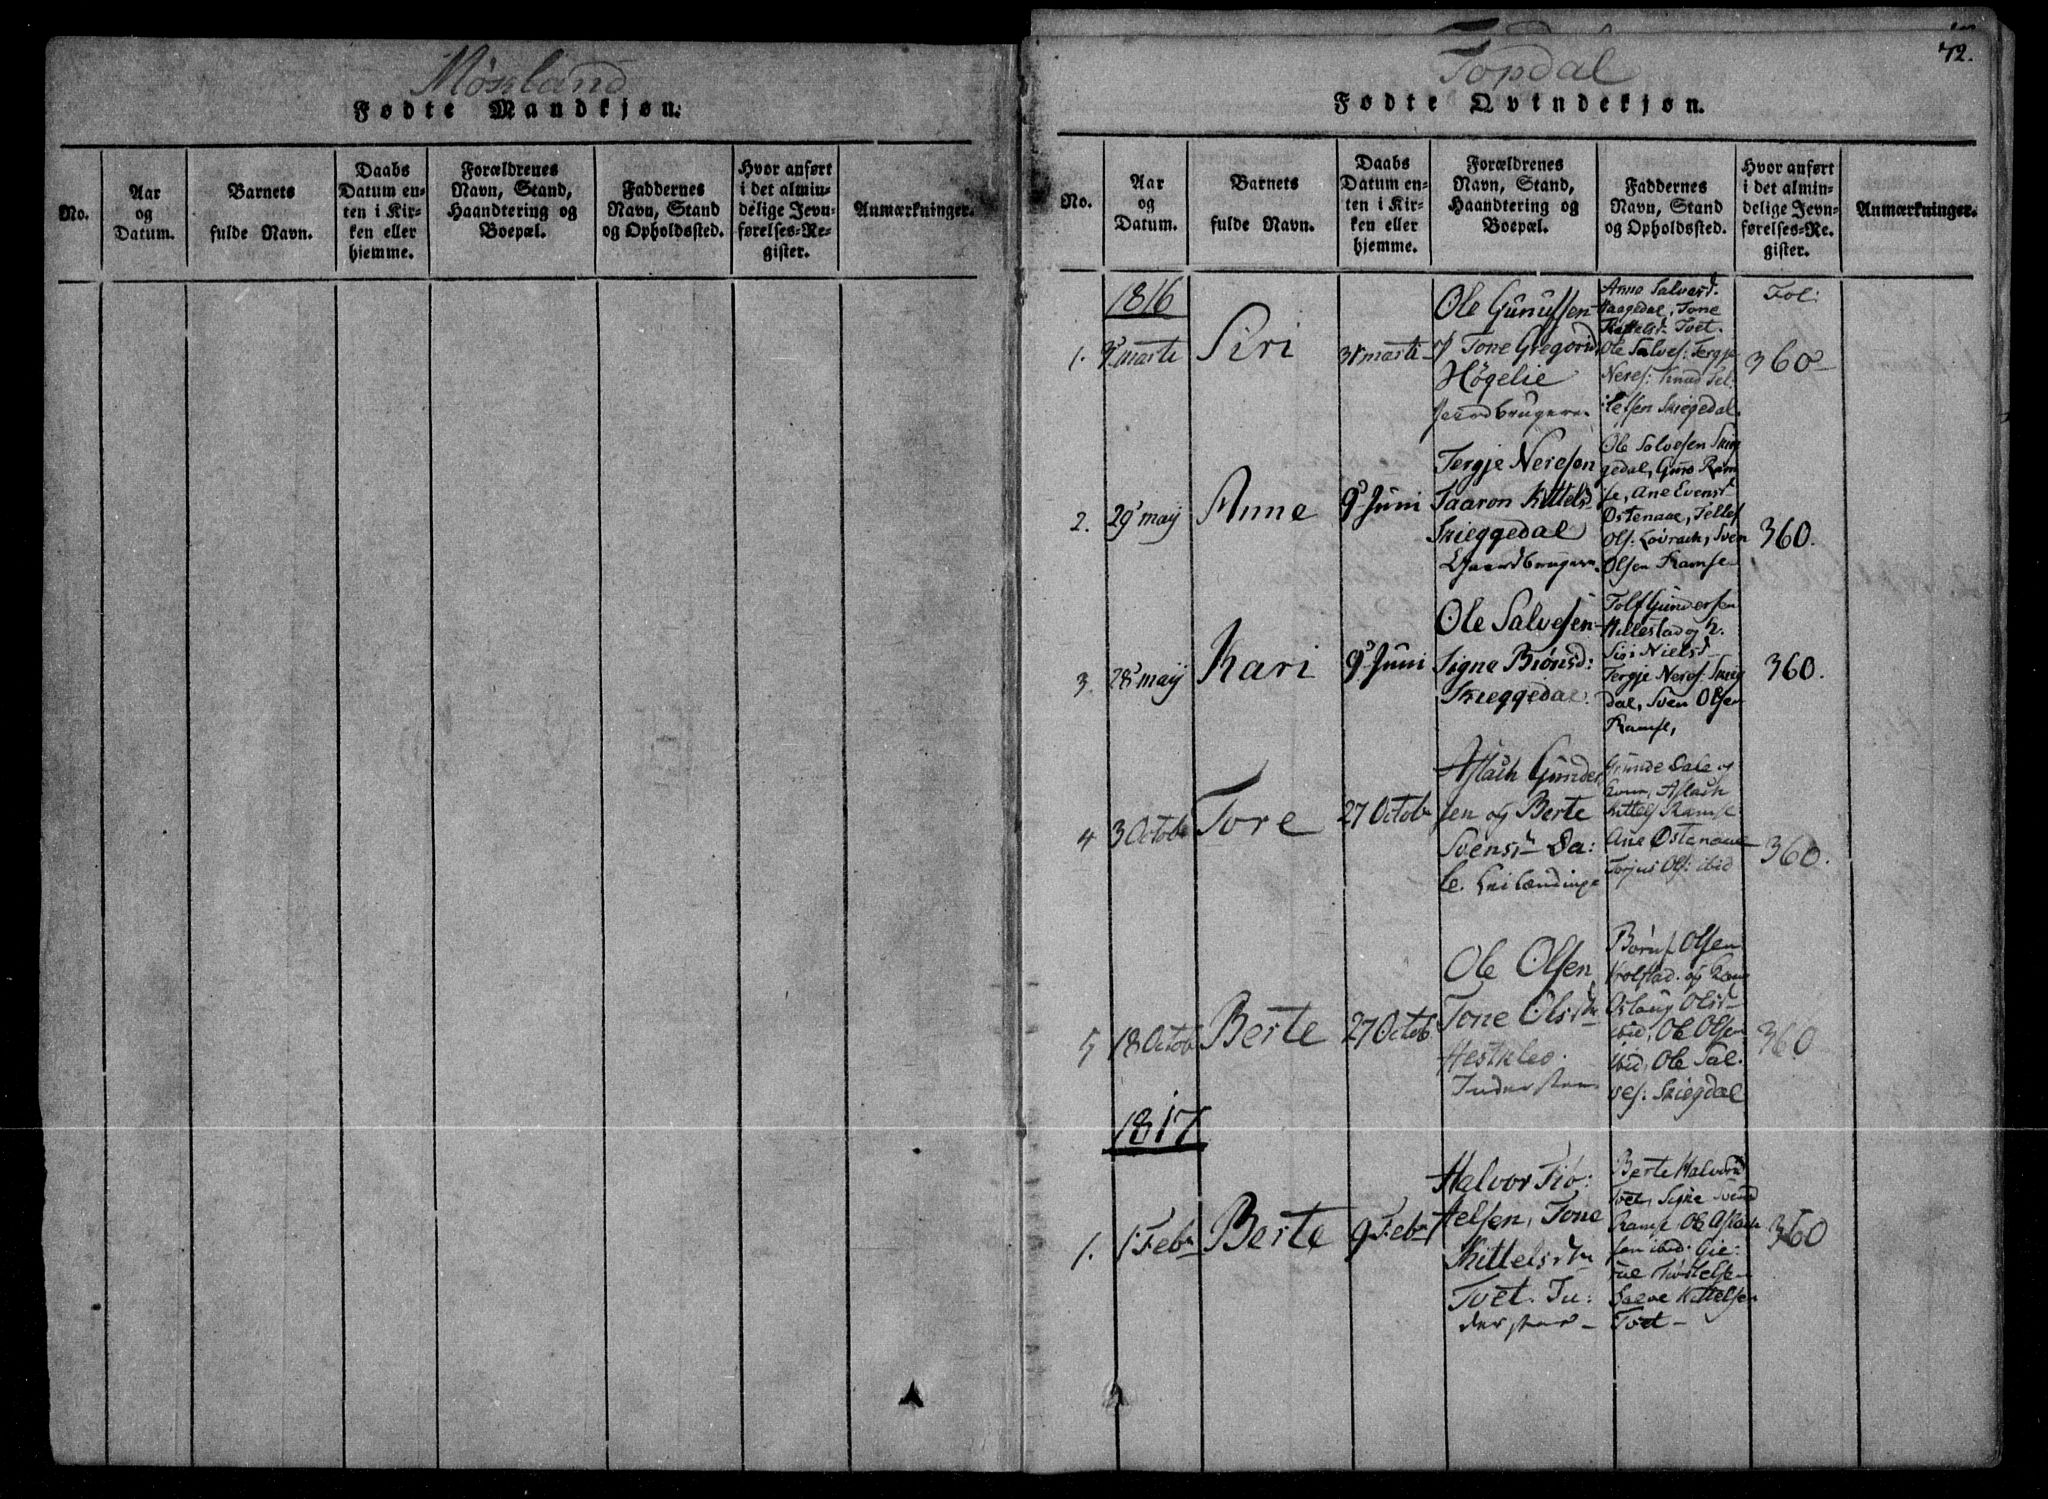 Møsland
Fødte Mandkjøn.
No.
Aar
og
Datum.
Barnets
fulde Navn.
Daabs
Datum en-
ten i Kir-
ken eller
hjemme.
Forældrenes
Navn, Stand,
Haandtering og
Boepæl.
Faddernes
Navn, Stand
og Opholdssted.
Hvor anført
i det almin-
delige Jevn-
førelses-Re-
gister.
Anmærkninger.
72.
Topdal
Fødte Qvindekjøn.
No.
Aar
og
Datum.
Barnets
fulde Navn.
Daabs
Datum en-
ten i Kir-
ken eller
hjemme.
Forældrenes
Navn, Stand,
Haandtering og
Boepæl.
Faddernes
Navn, Stand
og Opholdssted.
Hvor anført
i det almin-
delige Jevn-
førelses-Re-
gister.
Anmærkninger.
1816
Fol:
1.
marti
Siri
31 marti
Ole
Tone Gregorid
Høgelie
Anne Salvesd.
Tone
Tvet.
Ole Salves: Tergje
Neres: Knud Tel-
lefsen Skiegedal.
360
2.
29 maij
Anne
9 Juni
Tergje Neresen
Taaron Kittelsd
Skieggedal
Gaardbrugere
Ole Salvesen Skieg
gedal, Guro Ram
se, Ane Evensd
Østenaae, Tellef
Ols: Løvrack, Sven
Olsen Ramse
360.
3.
28 maij
Kari
9 Juni
Ole Salvesen
Signe Biønsd:
Skieggedal.
Gundersen
Hillestad og K.
Siri Nielsd
Tergje Neres: Skieg
dal, Sven Olsen
Ramse,
360.
4
3 Octobr
Tore
27 Octobr
Aslach Gunder
sen og Berte
Svensd Da:
le. Leilændinge
Gunde Dale og
Kone, Aslach
Kittels Ramse
Ane Østenaae
Torjus Ols: ibid
360.
5
18 Octob
Berte
27 Octob
Ole Olsen
Tone Olsdtr
Inderster
Olsen
og Kone
Aslaug Olsd
ibid, Ole Olsen
ibid, Ole Sal-
ves: Skiegdal
360
1817
1.
1 Febr
Berte
9 Febr
Halvor Tiø:
elsen, Tone
Kittelsdtr
Tvet. In:
derster
Berte Halvorsd
Tvet, Signe Svensd
Ramse, Ole Aslach
sen ibid. Gie:
Salve Kittelsen
Tvet
360